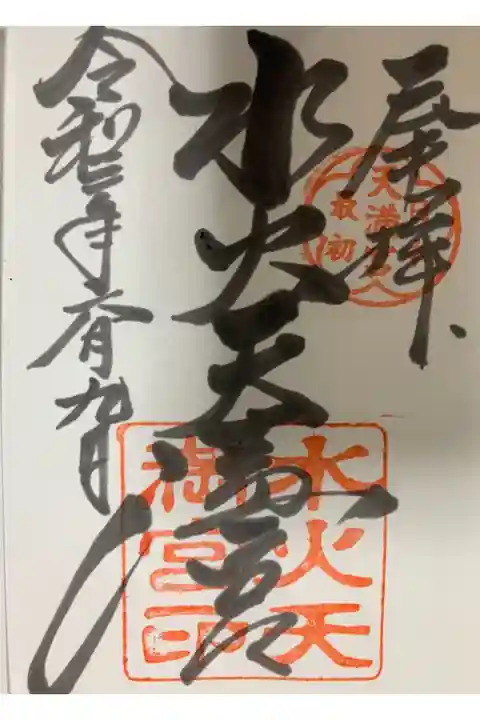 奉拝
天満
最初
水火天満宮
水火天
満宮印
令和三年六月九日